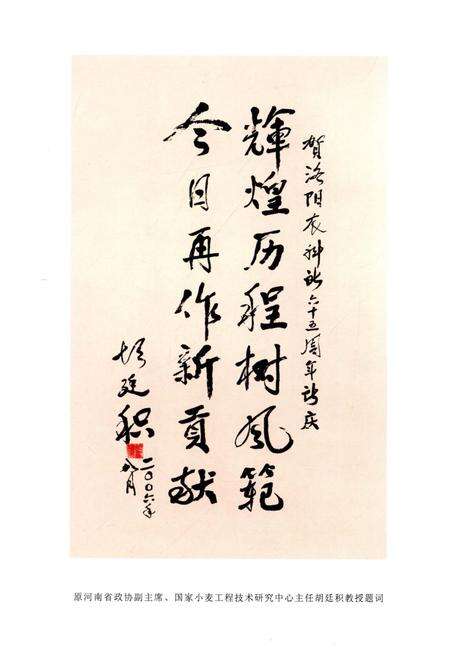 贺洛阳农科所六十五周年所庆
輝煌历程树风範
今日再作新贡献
胡廷积
二〇〇六年
八月
原河南省政协副主席、国家小麦工程技术研究中心主任胡廷积教授题词